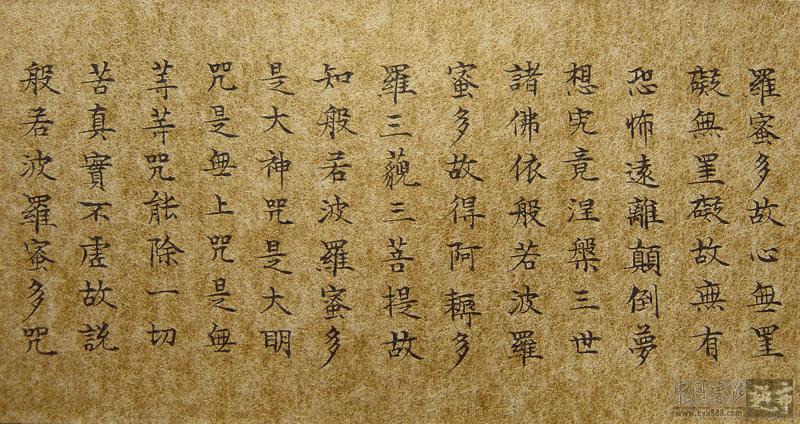 羅蜜多故心無罣
礙無罣礙故無有
恐怖遠離顛倒夢
想究竟涅槃三世
諸佛依般若波羅
蜜多故得阿耨多
羅三藐三菩提故
知般若波羅蜜多
是大神咒是大明
咒是無上咒是無
等等咒能除一切
苦真實不虛故說
般若波羅蜜多咒